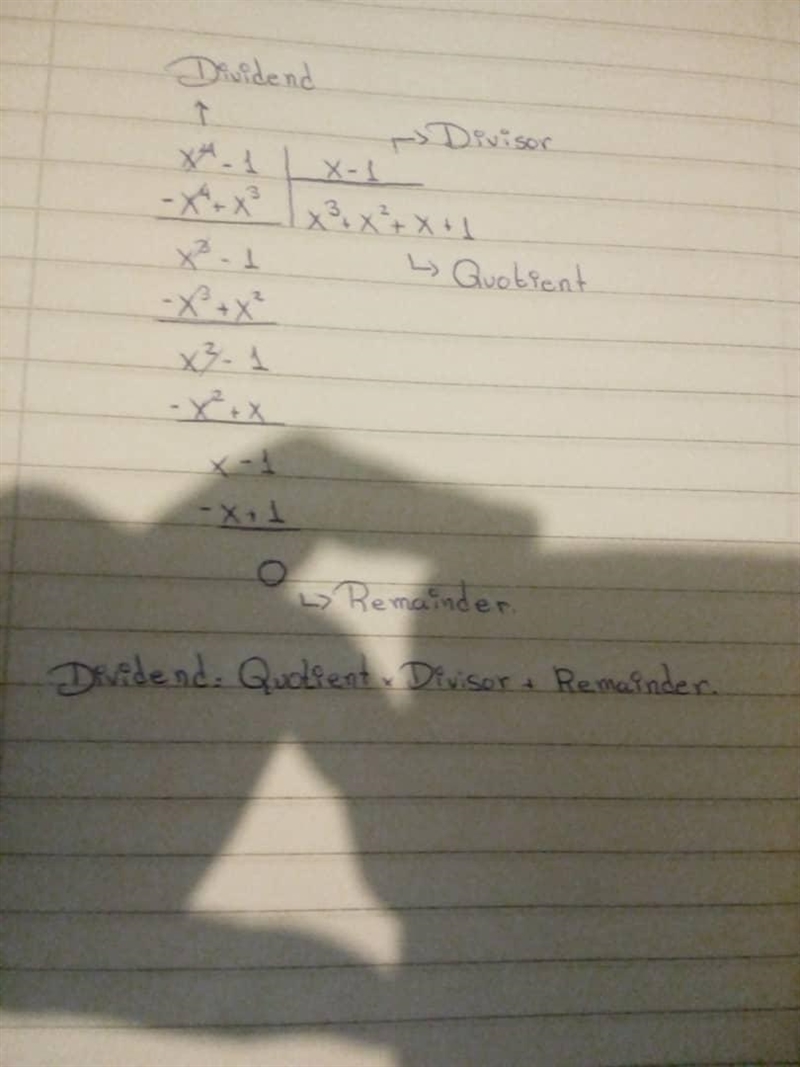 Dividend
↑
x⁴ - 1 | x - 1 ↱ Divisor
-x⁴ + x³ | x³ + x² + x + 1
x³ - 1 ↳ Quotient
-x³ + x²
x² - 1
-x² + x
x - 1
-x + 1
0
↳ Remainder.
Dividend = Quotient × Divisor + Remainder.